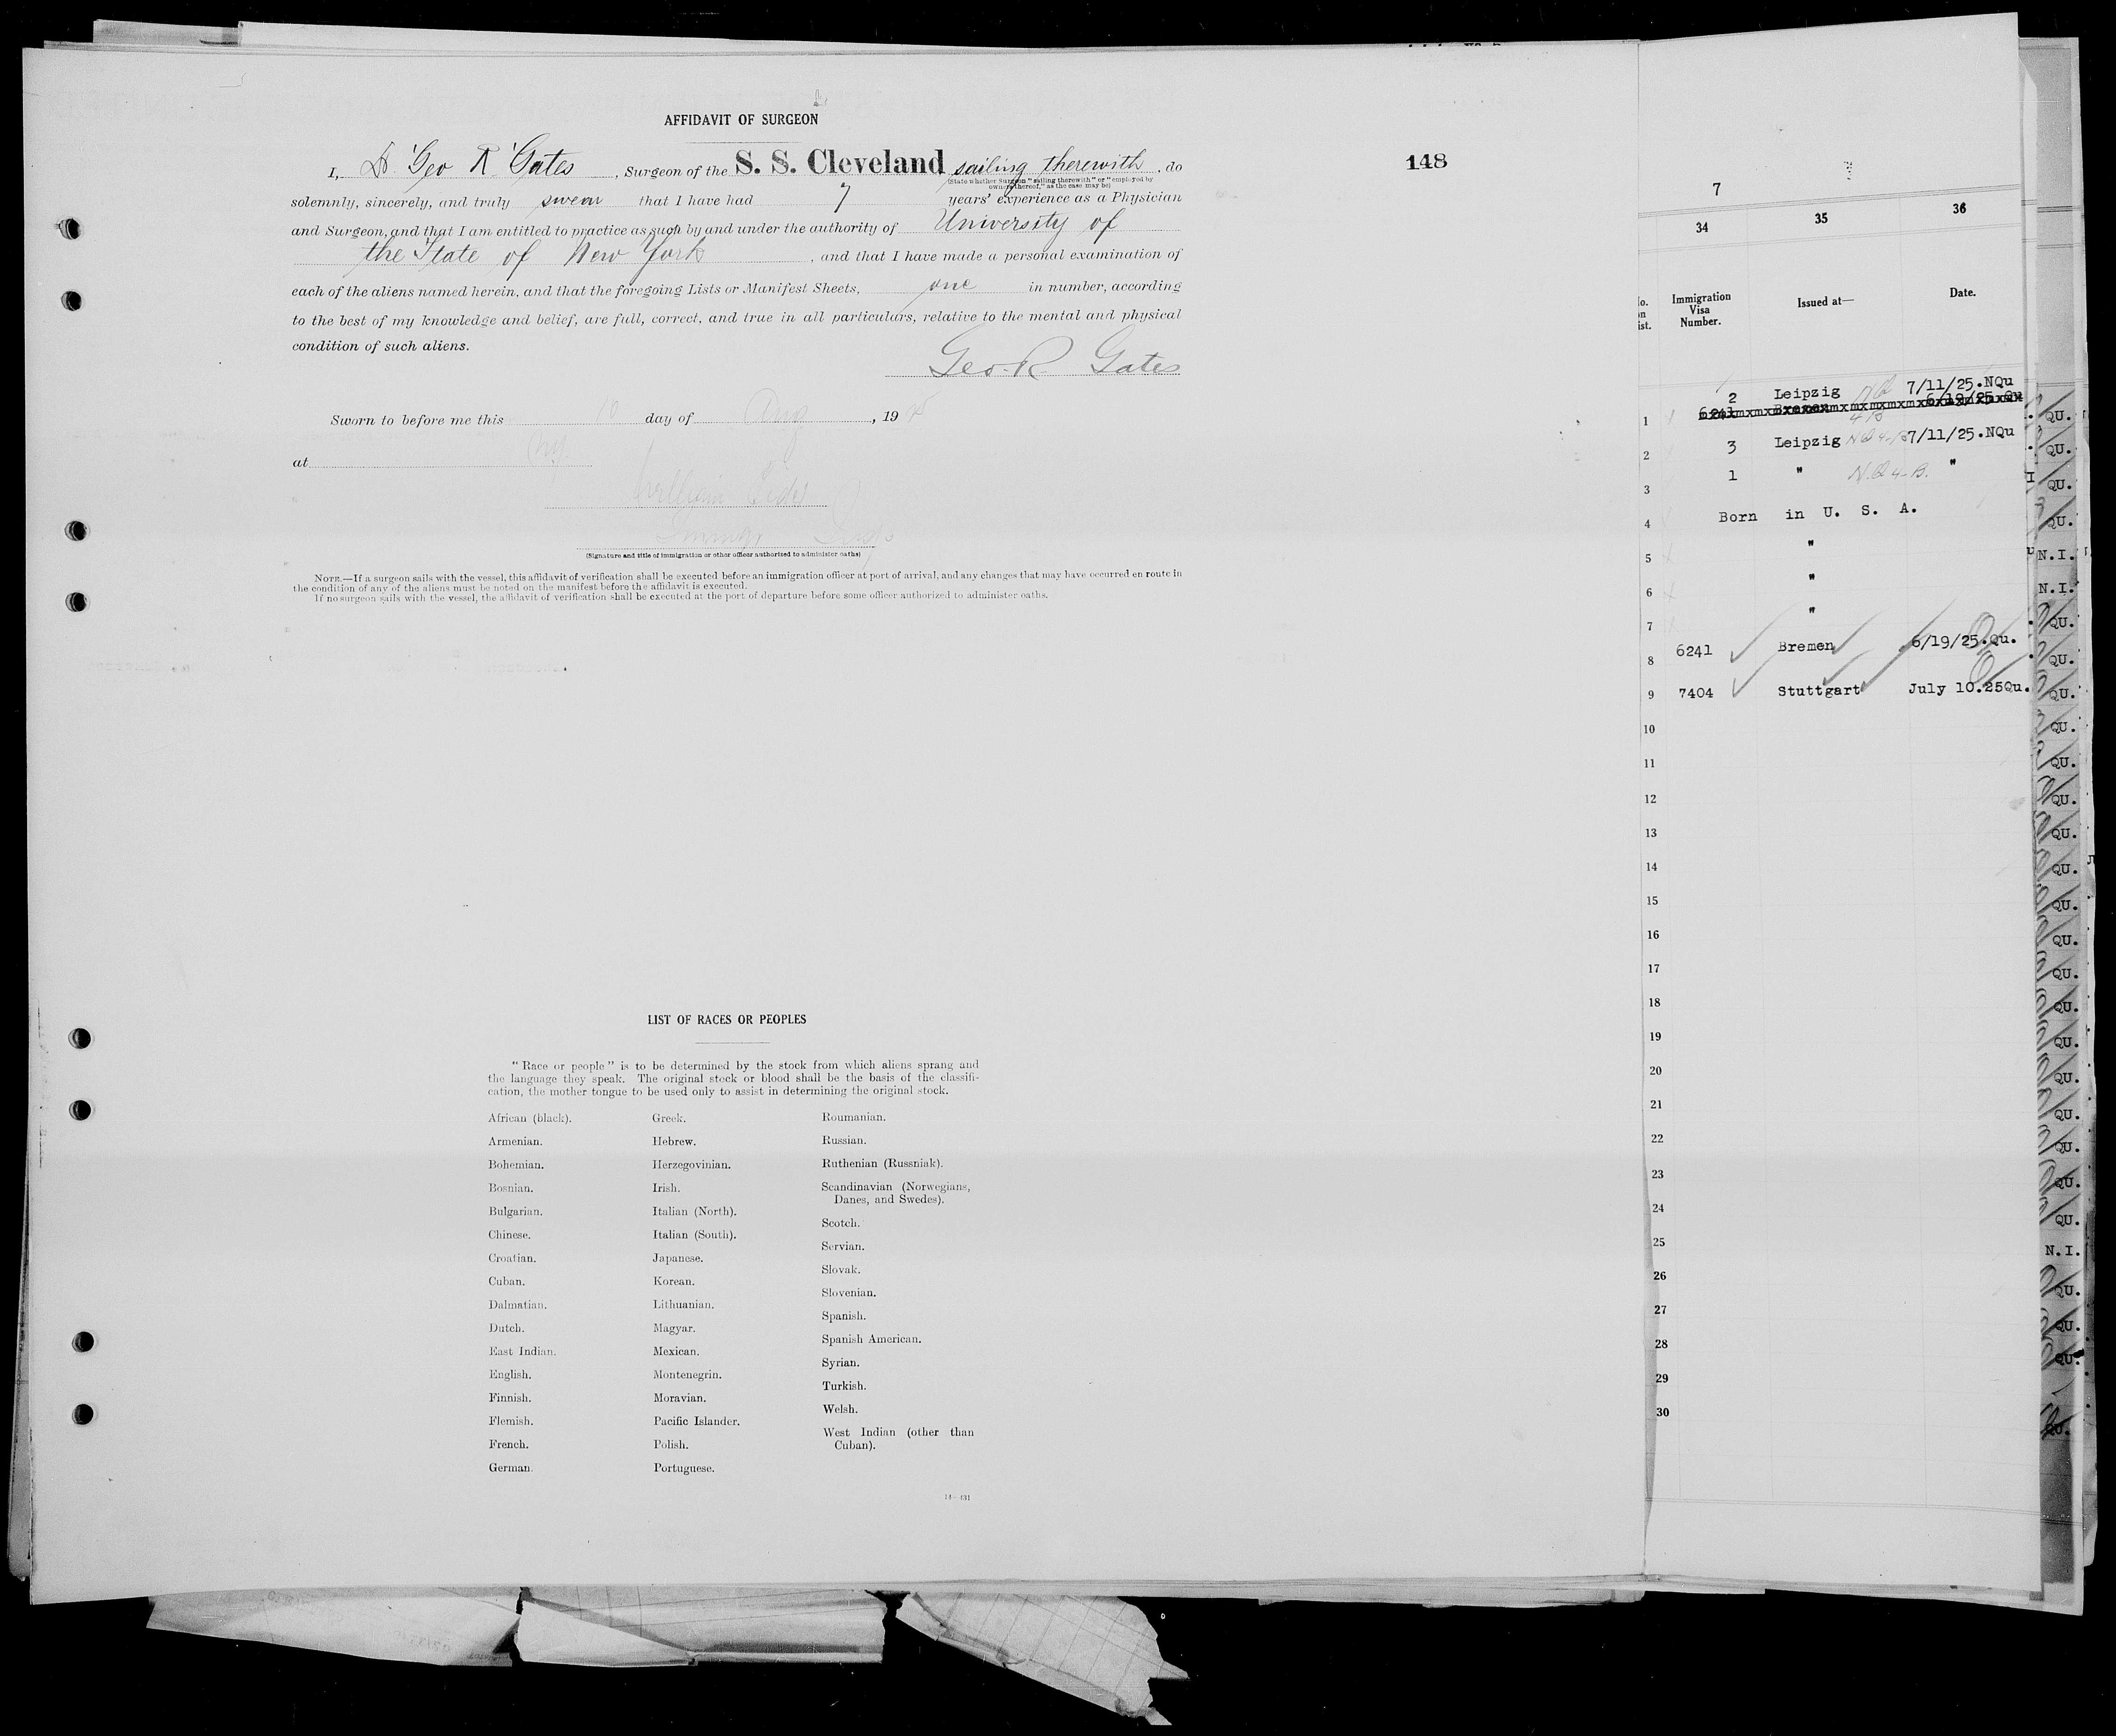 AFFIDAVIT OF SURGEON
I, Dr. Geo R Gates, Surgeon of the S. S. Cleveland sailing therewith, do
(State whether Surgeon "sailing therewith" or "employed by
owners thereof," as the case may be)
solemnly, sincerely, and truly swear that I have had 7 years' experience as a Physician
and Surgeon, and that I am entitled to practice as such by and under the authority of University of
the State of New York, and that I have made a personal examination of
each of the aliens named herein, and that the foregoing Lists or Manifest Sheets, one in number, according
to the best of my knowledge and belief, are full, correct, and true in all particulars, relative to the mental and physical
condition of such aliens.
Geo. R Gates
Sworn to before me this 10 day of Aug, 19
at N.Y.
William
(Signature and title of immigration or other officer authorized to administer oaths)
NOTE.—If a surgeon sails with the vessel, this affidavit of verification shall be executed before an immigration officer at port of arrival, and any changes that may have occurred en route in
the condition of any of the aliens must be noted on the manifest before the affidavit is executed.
If no surgeon sails with the vessel, the affidavit of verification shall be executed at the port of departure before some officer authorized to administer oaths.
LIST OF RACES OR PEOPLES
"Race or people" is to be determined by the stock from which aliens sprang and
the language they speak. The original stock or blood shall be the basis of the classifi-
cation, the mother tongue to be used only to assist in determining the original stock.
African (black).
Armenian.
Bohemian.
Bosnian.
Bulgarian.
Chinese.
Croatian.
Cuban.
Dalmatian.
Dutch.
East Indian.
English.
Finnish.
Flemish.
French.
German.
Greek.
Hebrew.
Herzegovinian.
Irish.
Italian (North).
Italian (South).
Japanese.
Korean.
Lithuanian.
Magyar.
Mexican.
Montenegrin.
Moravian.
Pacific Islander.
Polish.
Portuguese.
Roumanian.
Russian.
Ruthenian (Russniak).
Scandinavian (Norwegians,
Danes, and Swedes).
Scotch.
Servian.
Slovak.
Slovenian.
Spanish.
Spanish American.
Syrian.
Turkish.
Welsh.
West Indian (other than
Cuban).
148
7
34 35 36
Immigration
Visa
Number.
Issued at—
Date.
2 Leipzig 7/11/25.NQu
1 6241 Bremen 6/19/25 Qu
2 3 Leipzig NQ 4-B 7/11/25.NQu
3 1 " N.Q 4-B. "
4 Born in U. S. A.
5 "
6 "
7 "
8 6241 Bremen 6/19/25.Qu.
9 7404 Stuttgart July 10.25Qu.
10
11
12
13
14
15
16
17
18
19
20
21
22
23
24
25
26
27
28
29
30
QU.
QU.
QU.
QU.
N.I.
N.I.
QU.
QU.
QU.
QU.
QU.
QU.
QU.
QU.
QU.
QU.
QU.
QU.
QU.
QU.
QU.
QU.
QU.
QU.
N.I.
QU.
QU.
QU.
QU.